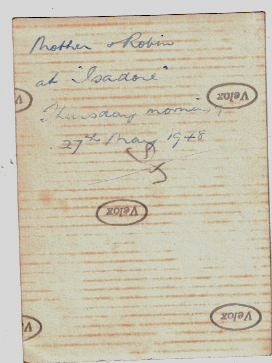 Mother & Robin
at "Isadore"
Thursday morning
27th May 1948
Velox
Velox
Velox